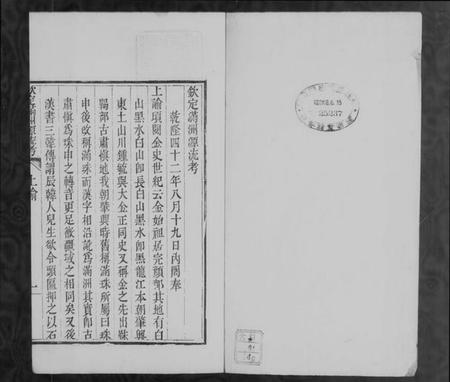 欽定滿洲源流考
乾隆四十二年八月十九日內閣奉
上諭頃閱金史世紀云金始祖居完顏部其地有白
山黑水白山即長白山黑水即黑龍江本朝肇興
東土山川鍾毓與大金正同史又稱金之先出靺
鞨部古肅慎地我朝肇興時舊稱滿珠所屬曰珠
申後改稱滿珠而漢字相沿訛為滿洲其實即古
肅慎為珠申之轉音更足徵疆域之相同矣又後
漢書三韓傳謂辰韓人兒生欲令頭匾押之以石
欽定滿洲源流考
上諭
一